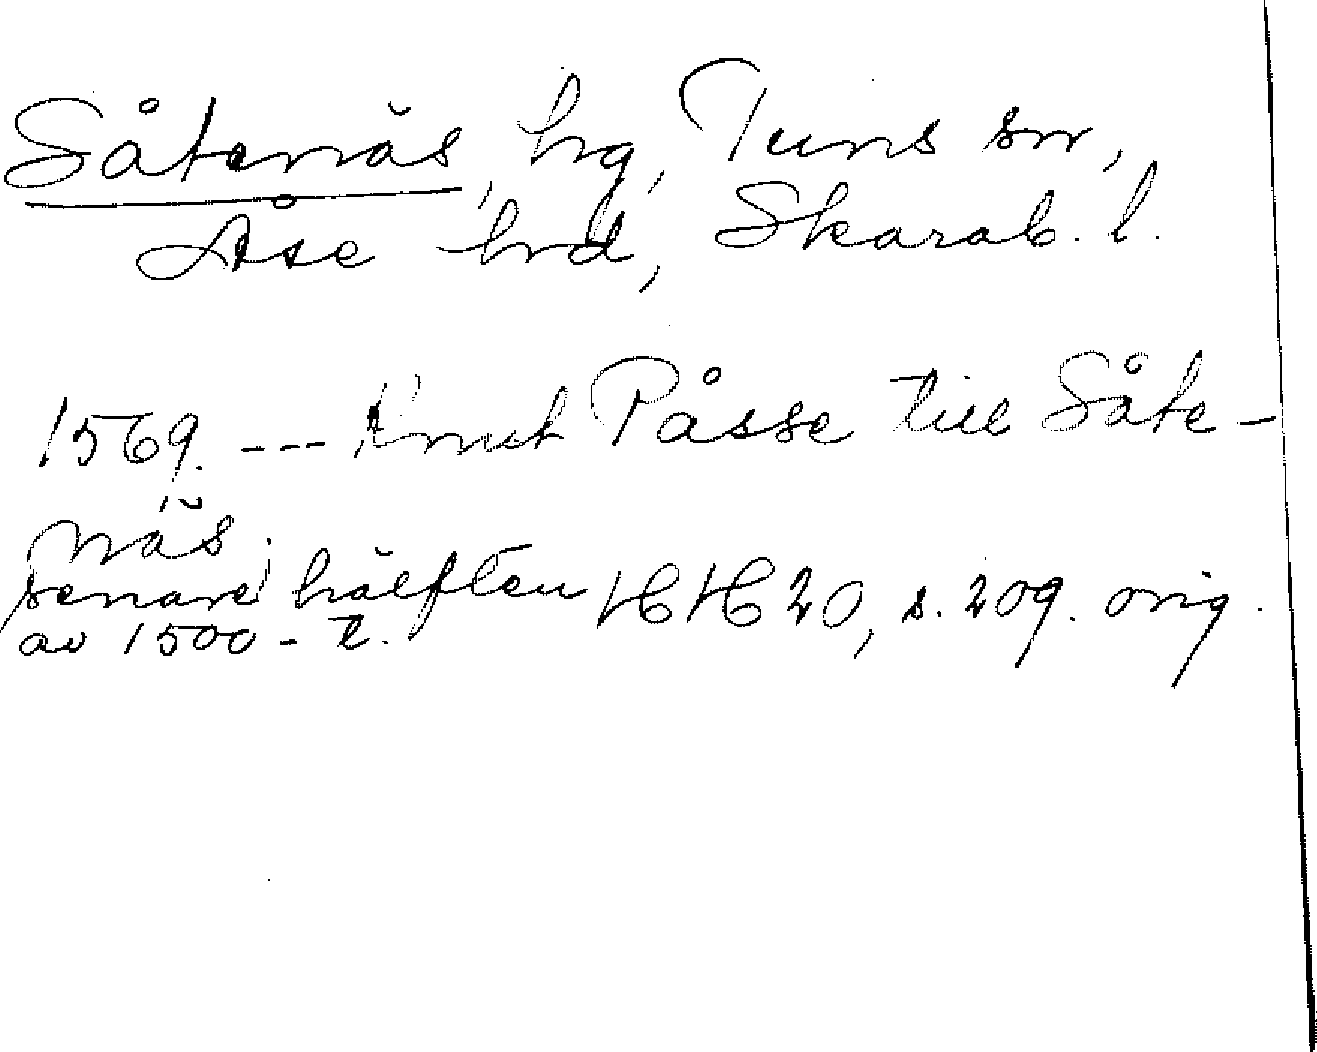 Såtenäs, hg, Tuns sn,
Åse hrd, Skarab. l.
1569. --- Knut Påsse till Såte-
näs.
senare hälften HH 20, s. 209. orig.
av 1500-t.